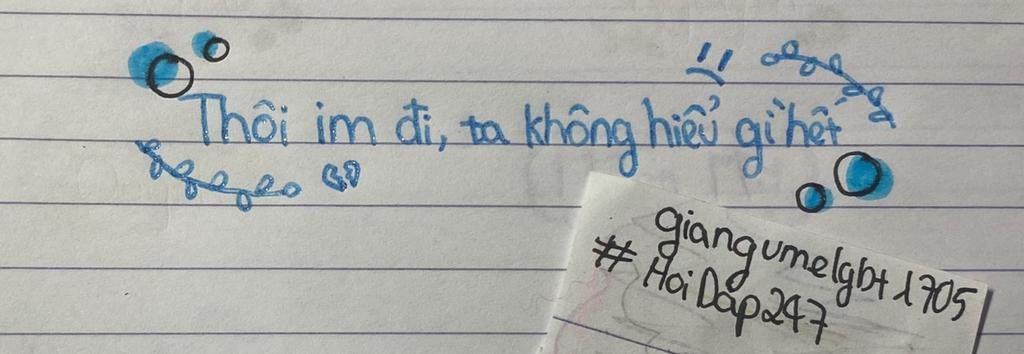 Thôi im đi, ta không hiểu gì hết
giangumelgbt1705
#HoiDap247